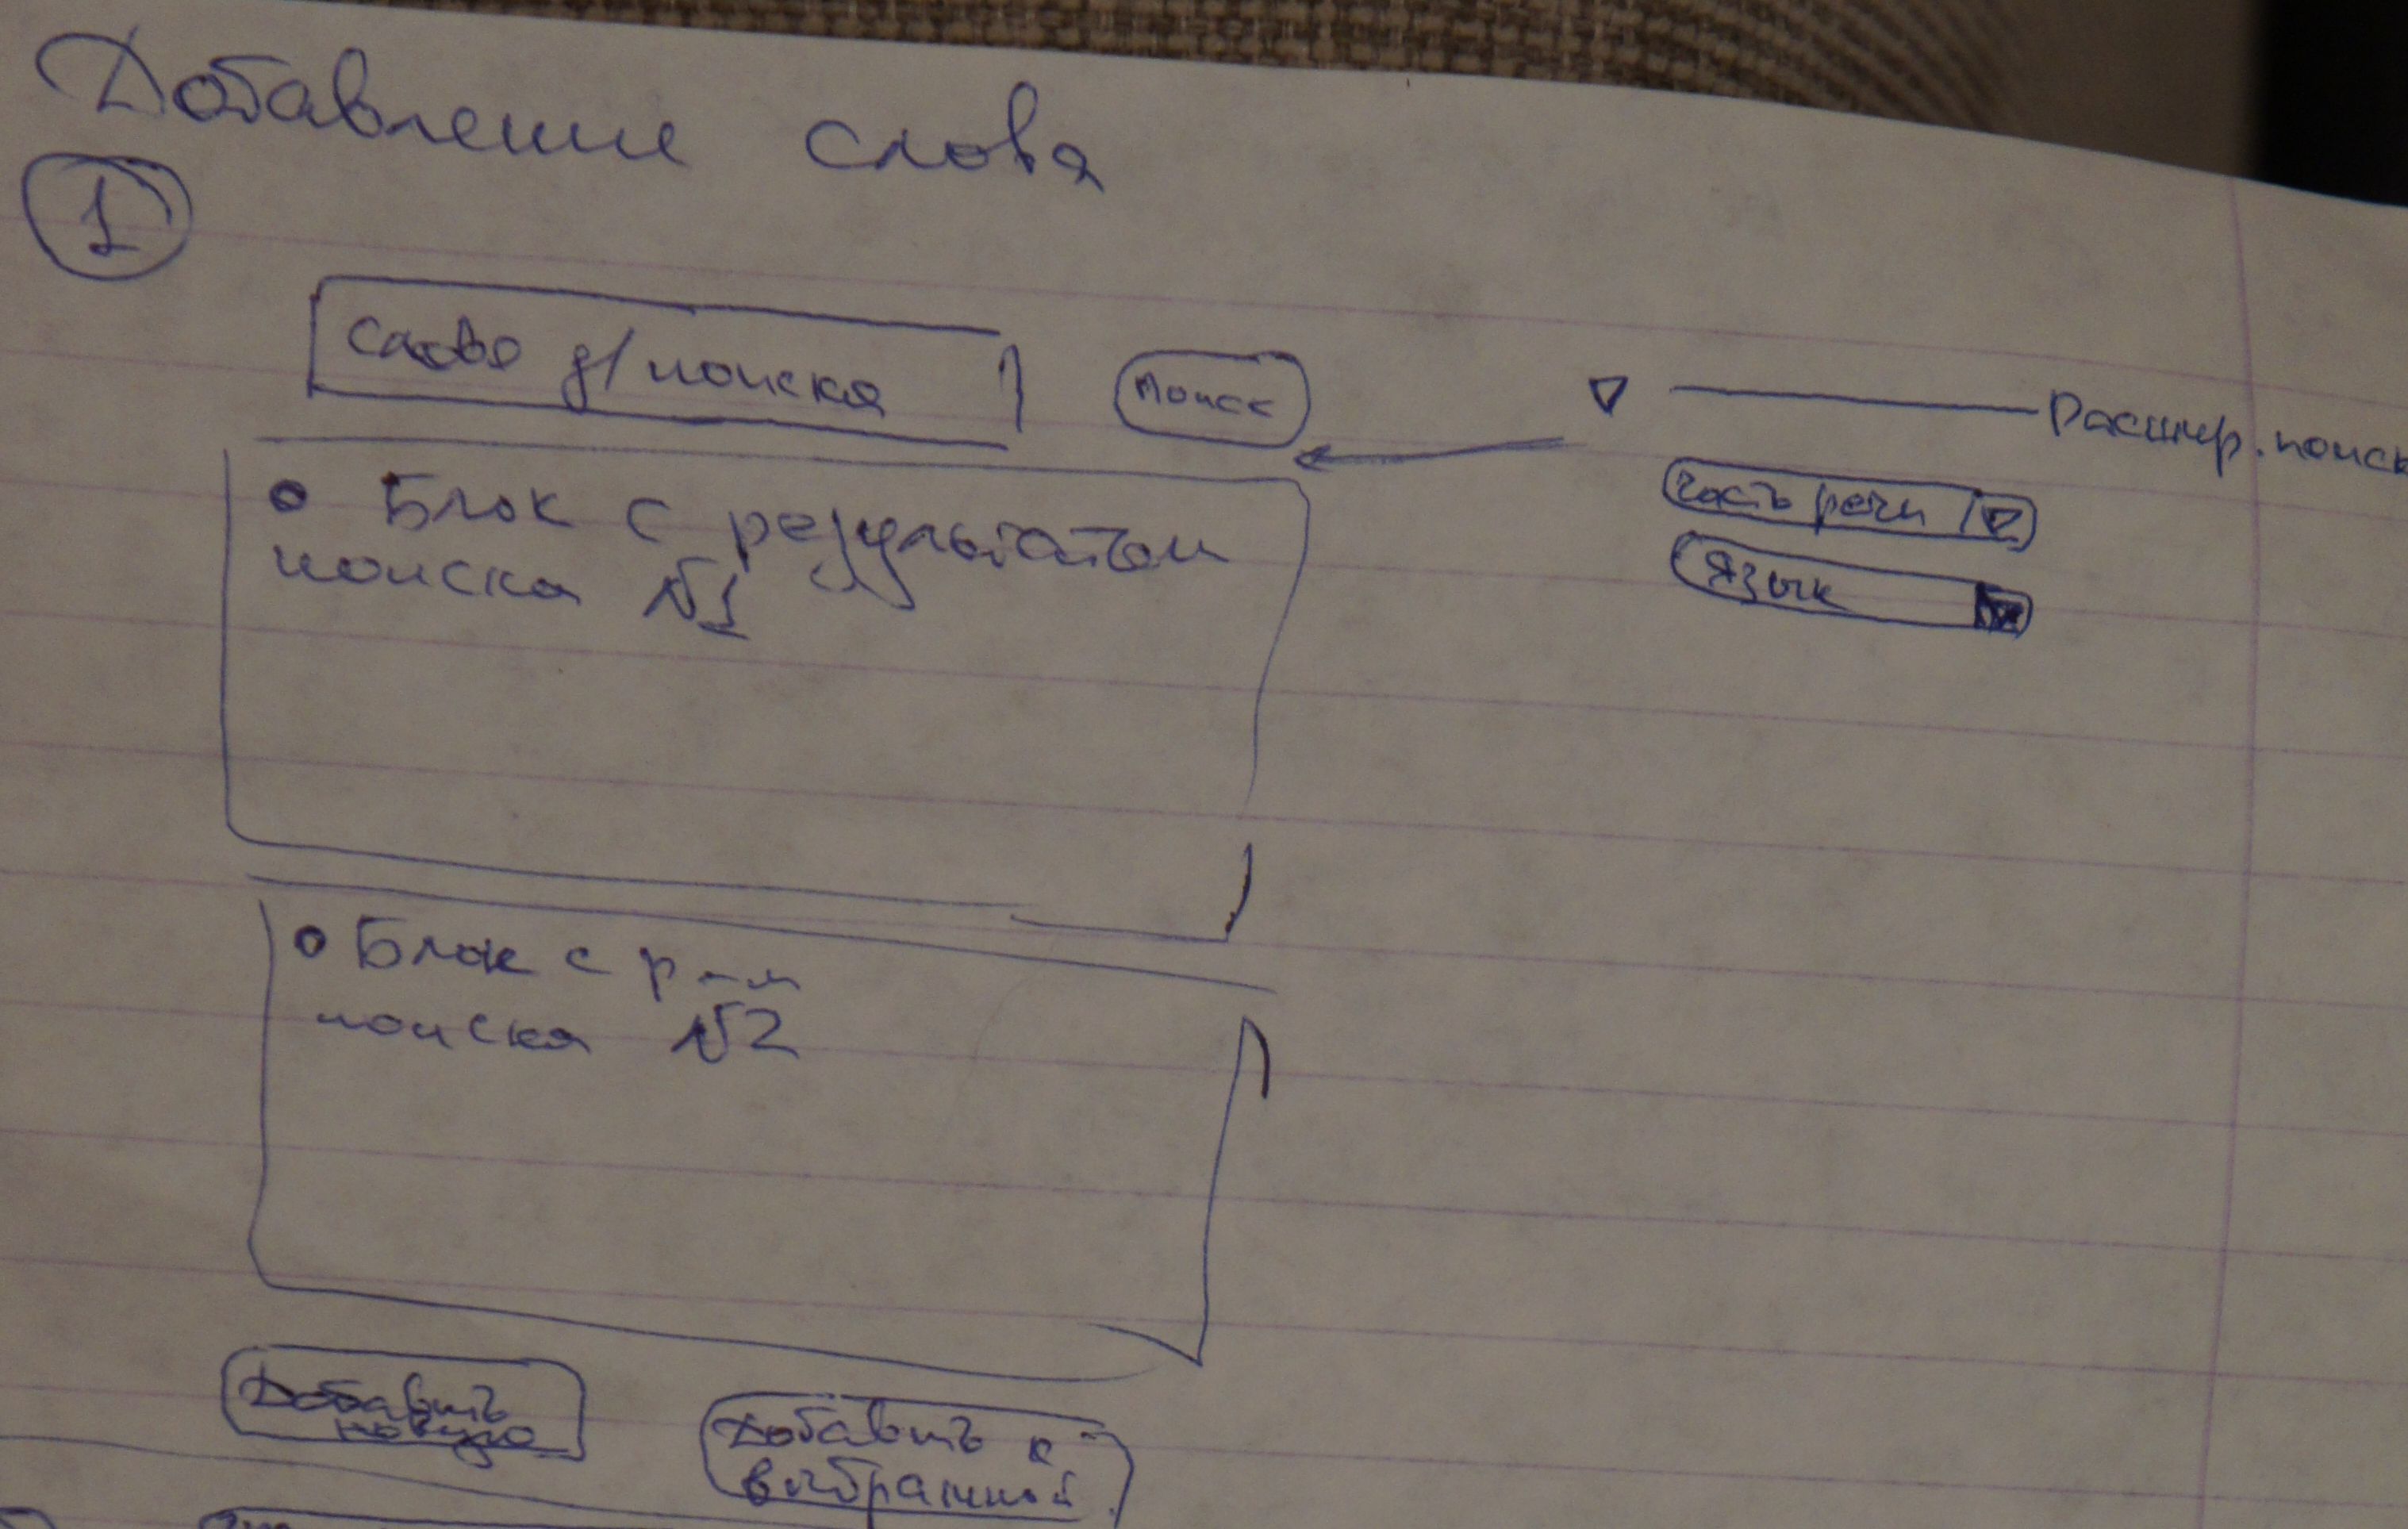 Добавление слова
1
слово д/поиска
Поиск
Расшир. поиск
часть речи
Язык
Блок с результатом
поиска №1
Блок с р--м
поиска №2
Добавить
новую
Добавить к
выбранной